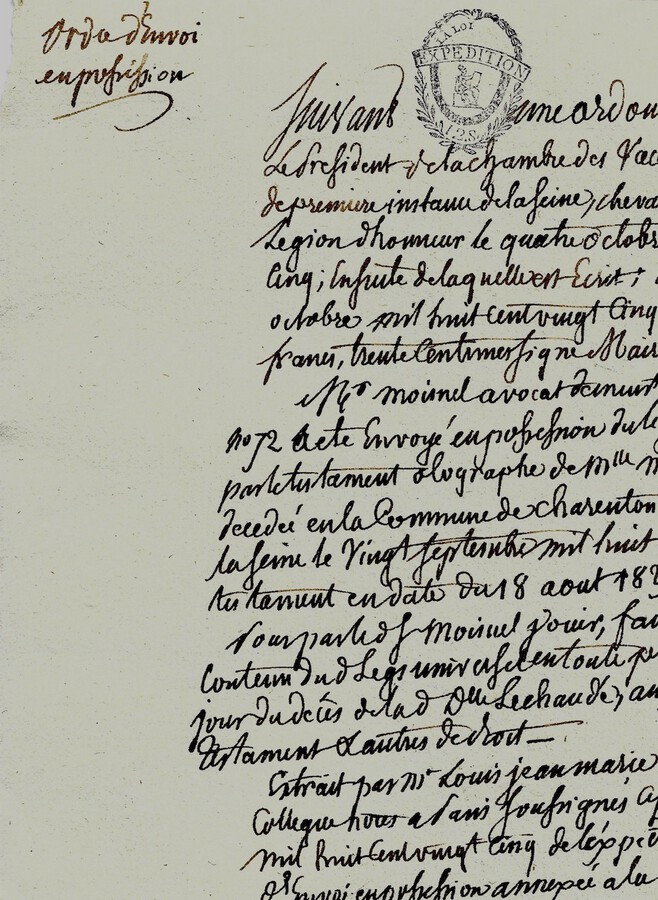 Ord. d'Envoi
en possession
LA LOI
EXPEDITION
Suivant une ordon
Le Président de la chambre des Vac
de premiere instance de la seine, cheva
Legion d'honneur le quatre octobr
Cinq; Ensuite de laquelle est Ecrit:
octobre mil huit cent vingt Cinq
francs, trente Centimes signé
Me moisnel avocat demeur
no 72 a été Envoyé en possession du le
par le testament olographe de Mlle
decedée en la Commune de charenton
la seine le Vingt septembre mil huit
testament en date du 18 aout 182
Pour par led S. Moisnel jouir, fai
Contenu dud Legs universel en toute p
jour du décès de lad Dlle Lechaudé, au
Testament & autres de droit —
Extrait par Me Louis jean marie
Collegue nores a Paris soussignés
mil huit Cent vingt Cinq de l'éxpé
d'Envoi en possession annexée a la